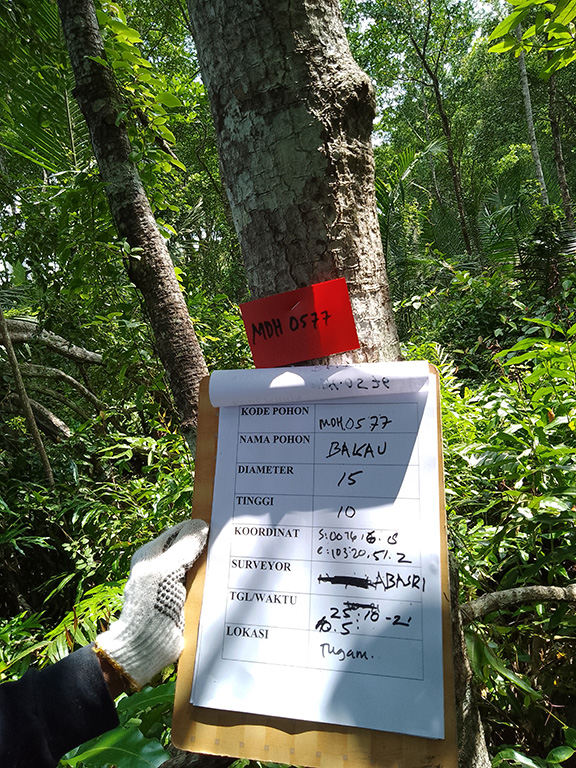 MDH 0577
KODE POHON MDH0577
NAMA POHON BAKAU
DIAMETER 15
TINGGI 10
KOORDINAT
E:103°20.51.2
SURVEYOR ABASRI
TGL/WAKTU
LOKASI Tugam.